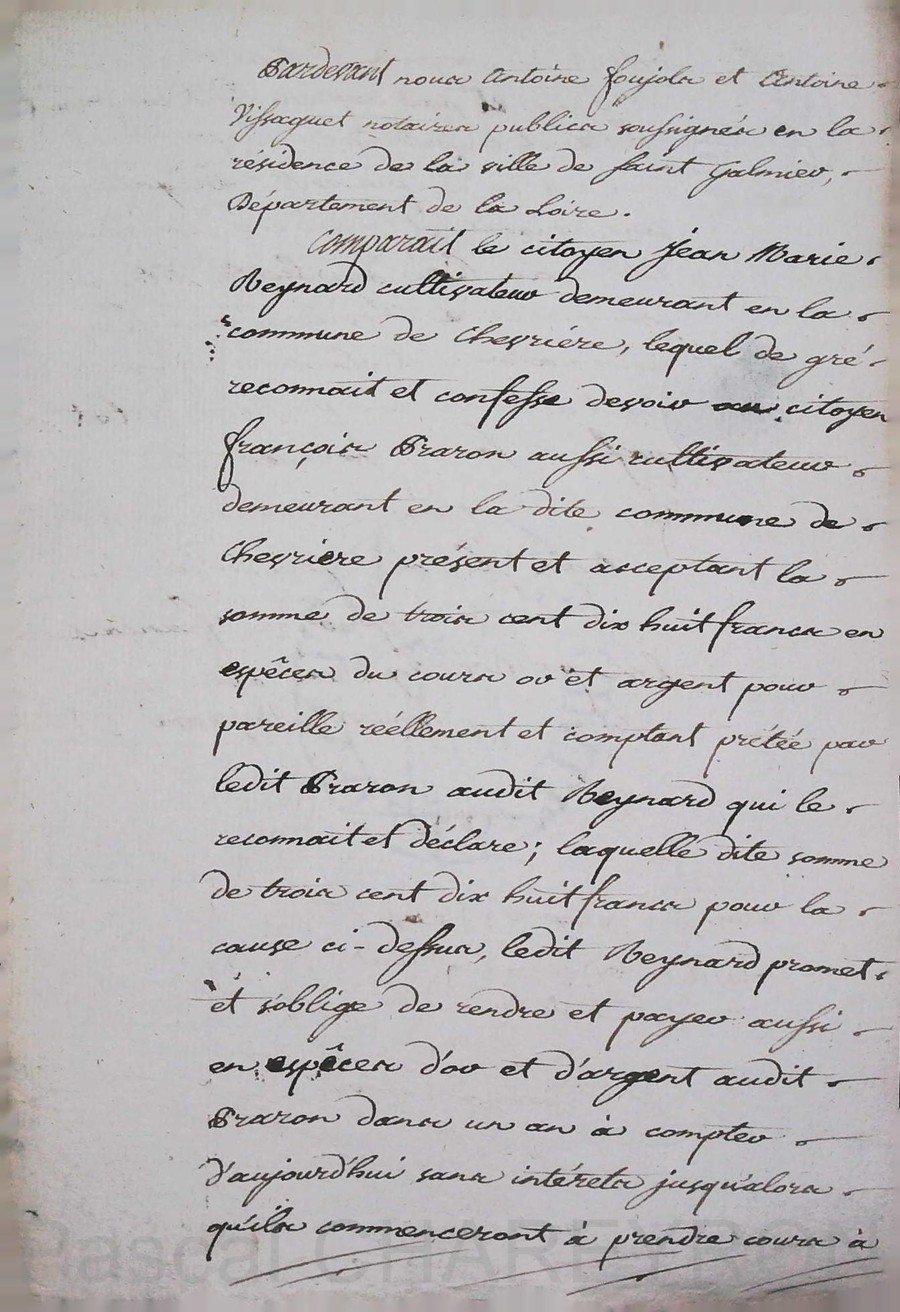 Pardevant nous Antoine foujols et Antoine
Vissaguet notaires publics soussignés en la
résidence de la ville de saint galmier,
Département de la Loire.
Comparait le citoyen Jéan Marie
Reynard cultivateur demeurant en la
commune de Chevriére, lequel de gré
reconnait et confesse devoir au citoyen
françois Praron aussi cultivateur
demeurant en la dite commune de
Chevriere présent et acceptant la
somme de trois cent dix huit francs en
espêces du cours or et argent pour
pareille réellement et comptant prétée par
ledit Praron audit Reynard qui le
reconnait et déclare; laquelle dite somme
de trois cent dix huit francs pour la
cause ci-dessus, ledit Reynard promet
et s'oblige de rendre et payer aussi
en espêces d'or et d'argent audit
Praron dans un an à compter
d'aujourd'hui sans intérets jusqu'alors
qu'ils commenceront à prendre cours à
Pascal CHAREYRON